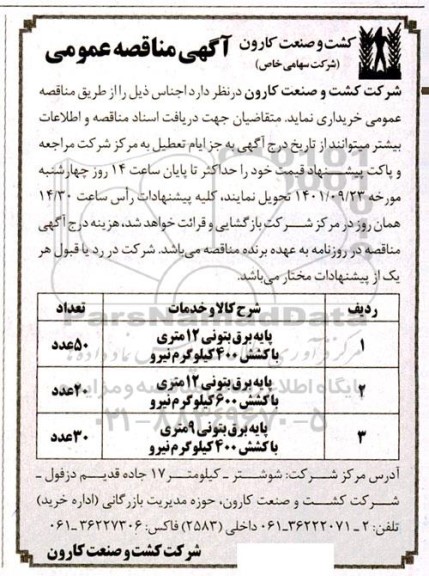 کشت و صنعت کارون
(شرکت سهامی خاص)
آگهی مناقصه عمومی
شرکت کشت و صنعت کارون درنظر دارد اجناس ذیل را از طریق مناقصه
عمومی خریداری نماید. متقاضیان جهت دریافت اسناد مناقصه و اطلاعات
بیشتر میتوانند از تاریخ درج آگهی به جز ایام تعطیل به مرکز شرکت مراجعه
و پاکت پیشنهاد قیمت خود را حداکثر تا پایان ساعت ۱۴ روز چهارشنبه
مورخه ۱۴۰۱/۰۹/۲۳ تحویل نمایند، کلیه پیشنهادات رأس ساعت ۱۴/۳۰
همان روز در مرکز شرکت بازگشایی و قرائت خواهد شد، هزینه درج آگهی
مناقصه در روزنامه به عهده برنده مناقصه می‌باشد. شرکت در رد یا قبول هر
یک از پیشنهادات مختار می‌باشد.
ردیف شرح کالا و خدمات تعداد
۱ پایه برق بتونی ۱۲ متری با کشش ۴۰۰ کیلوگرم نیرو ۵۰ عدد
۲ پایه برق بتونی ۱۲ متری با کشش ۶۰۰ کیلوگرم نیرو ۲۰ عدد
۳ پایه برق بتونی ۹ متری با کشش ۴۰۰ کیلوگرم نیرو ۳۰ عدد
ParsNamadData
۰۲۱-۸۸۳۴۹۶۷۰-۵
آدرس مرکز شرکت: شوشتر ـ کیلومتر ۱۷ جاده قدیم دزفول ـ
شرکت کشت و صنعت کارون، حوزه مدیریت بازرگانی (اداره خرید)
تلفن: ۲ ـ ۳۶۲۲۲۰۷۱-۰۶۱ داخلی (۲۵۸۳) فاکس: ۳۶۲۲۷۳۰۶-۰۶۱
شرکت کشت و صنعت کارون